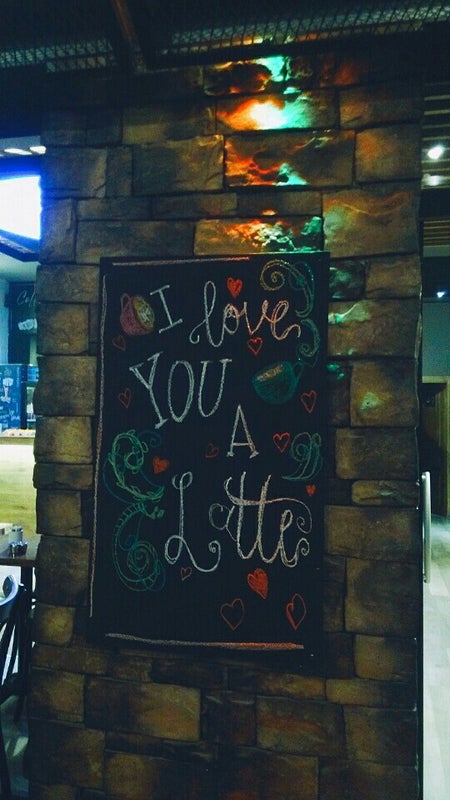 I love
YOU
A
Latte